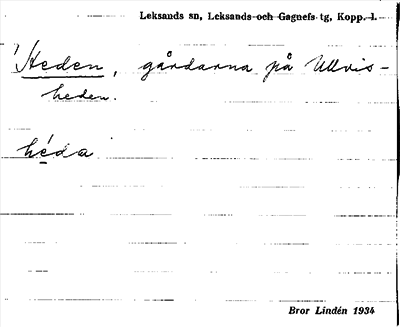 Leksands sn, Leksands och Gagnefs tg, Kopp. l.
'Heden, gårdarna på Ullvis-
heden.
héda
Bror Lindén 1934